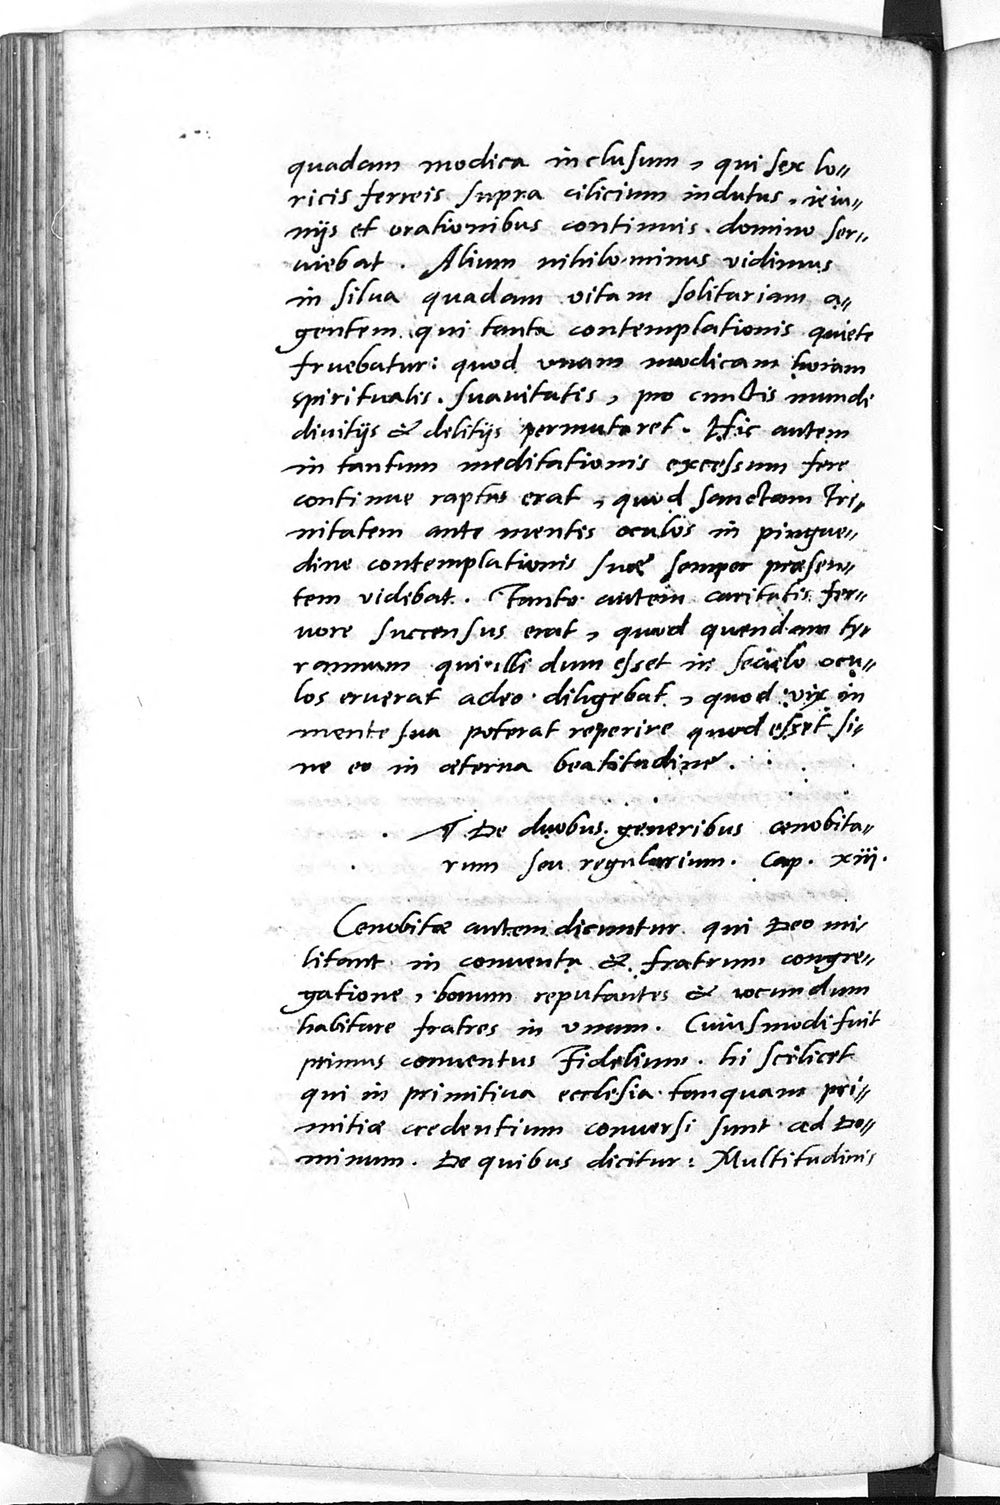 quadam modica inclusum, qui sex lo=
ricis ferreis supra cilicium indutus, ieiu=
nijs et orationibus continuis. domino ser=
uiebat. Alium nihilominus vidimus
in silua quadam vitam solitariam a=
gentem. qui tanta contemplationis quiete
fruebatur: quod vnam modicam horam
spiritualis. suauitatis, pro cunctis mundi
diuitijs & delitijs permutaret. Hic autem
in tantum meditationis excessum fere
continue raptus erat, quod sanctam Tri=
nitatem ante mentis oculos in pingue=
dine contemplationis suæ semper præsen=
tem videbat. Tanto autem caritatis fer=
uore succensus erat, quod quendam ty=
rannum qui illi dum esset in seculo ocu=
los eruerat adeo diligebat, quod vix in
mente sua poterat reperire quod esset si=
ne eo in æterna beatitudine.
¶ De duobus generibus cœnobita=
rum seu regularium. Cap. xiij.
Cenobitæ autem dicuntur qui Deo mi=
litant in conuentu & fratrum congre=
gatione, bonum reputantes & iocundum
habitare fratres in vnum. Cuiusmodi fuit
primus conuentus Fidelium. hi scilicet
qui in primitiua ecclesia tanquam pri=
mitiæ credentium conuersi sunt ad Do=
minum. De quibus dicitur: Multitudinis